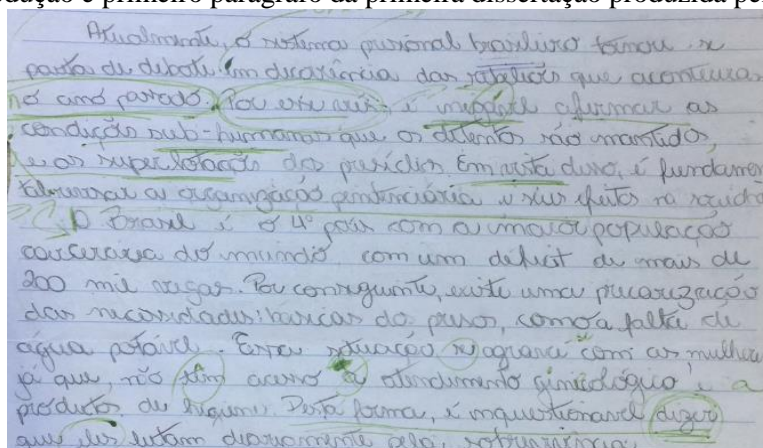 dução e primeiro parágrafo da primeira dissertação produzida pe
Atualmente, o sistema prisional brasileiro tornou se
pauta de debate em decorrência das rebeliões que aconteceram
no ano passado. Por este viés é inegável afirmar as
condições sub-humanas que os detentos são mantidos,
e as superlotações dos presídios. Em vista disso, é fundamen
tal a organização penitenciária e seus efeitos na socied
O Brasil é o 4º país com a maior população
carcerária do mundo, com um déficit de mais de
200 mil vagas. Por conseguinte, existe uma precarização
das necessidades básicas do presos, como a falta de
água potável. Essa situação se agrava com as mulheres
já que, não têm acesso a atendimento ginicológico e a
produtos de higiene. Desta forma, é inquestionável dizer
que eles lutam diariamente pela sobrevivência.